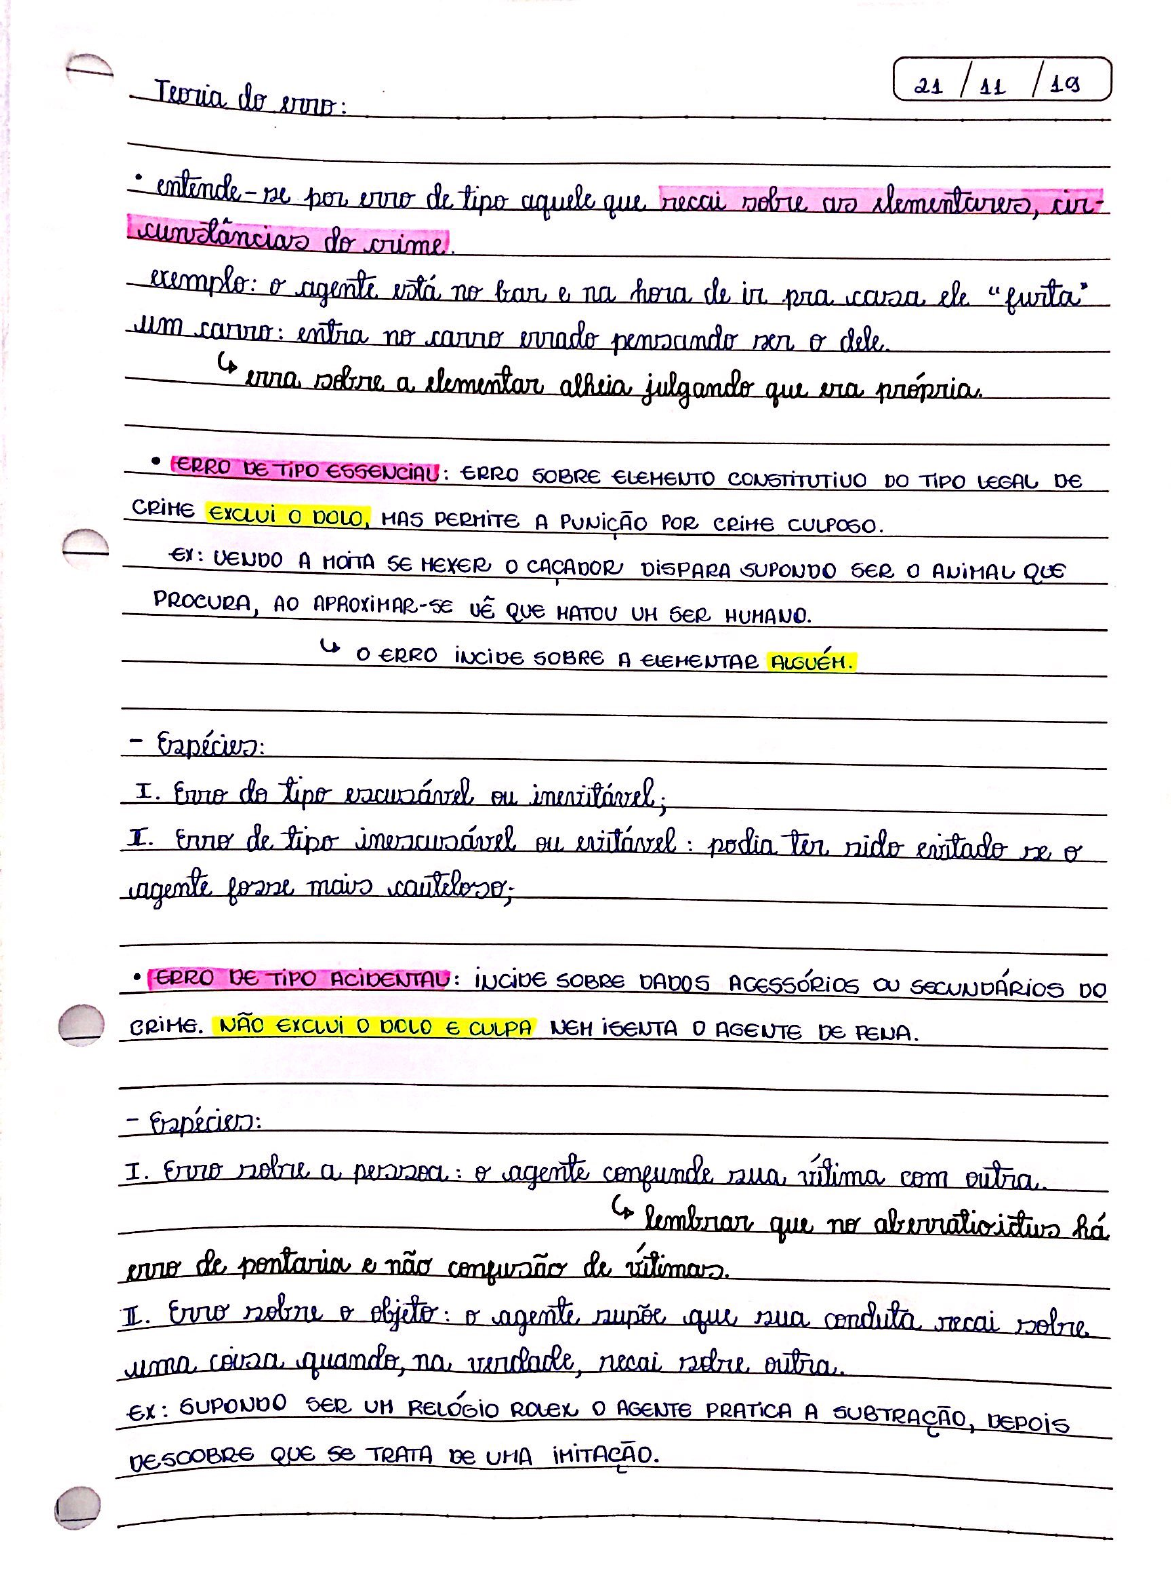 21 / 11 / 19
Teoria do erro:
• entende-se por erro de tipo aquele que recai sobre as elementares, cir-
cunstâncias do crime.
exemplo: o agente está no bar e na hora de ir pra casa ele "furta"
um carro: entra no carro errado pensando ser o dele.
↳ erra sobre a elementar alheia julgando que era própria.
• ERRO DE TIPO ESSENCIAL: ERRO SOBRE ELEMENTO CONSTITUTIVO DO TIPO LEGAL DE
CRIME EXCLUI O DOLO, MAS PERMITE A PUNIÇÃO POR CRIME CULPOSO.
EX: VENDO A MOITA SE MEXER O CAÇADOR DISPARA SUPONDO SER O ANIMAL QUE
PROCURA, AO APROXIMAR-SE VÊ QUE MATOU UM SER HUMANO.
↳ O ERRO INCIDE SOBRE A ELEMENTAR ALGUÉM.
- Espécies:
I. Erro do tipo escusável ou inevitável;
I. Erro de tipo inescusável ou evitável: podia ter sido evitado se o
agente fosse mais cauteloso;
• ERRO DE TIPO ACIDENTAL: INCIDE SOBRE DADOS ACESSÓRIOS OU SECUNDÁRIOS DO
CRIME. NÃO EXCLUI O DOLO E CULPA NEM ISENTA O AGENTE DE PENA.
- Espécies:
I. Erro sobre a pessoa: o agente confunde sua vítima com outra.
↳ lembrar que no aberratio ictus há
erro de pontaria e não confusão de vítimas.
II. Erro sobre o objeto: o agente supõe que sua conduta recai sobre
uma coisa quando, na verdade, recai sobre outra.
EX: SUPONDO SER UM RELÓGIO ROLEX O AGENTE PRATICA A SUBTRAÇÃO, DEPOIS
DESCOBRE QUE SE TRATA DE UMA IMITAÇÃO.